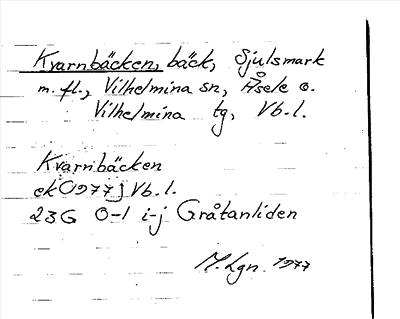 Kvarnbäcken, bäck, Sjulsmark
m.fl., Vilhelmina sn, Åsele o.
Vilhelmina tg, Vb.l.
Kvarnbäcken
ek 1977 j Vb.l.
23G 0-1 i-j Gråtanliden
M. Lgn. 1977